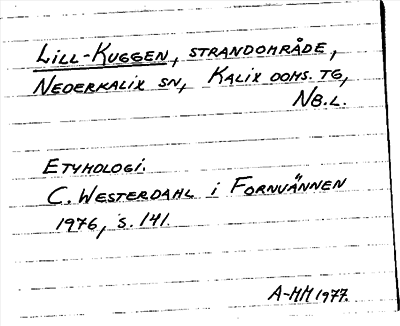 LILL-KUGGEN, STRANDOMRÅDE,
NEDERKALIX SN, KALIX DOMS. TG,
NB.L.
ETYMOLOGI.
C. WESTERDAHL i FORNVÄNNEN
1976, S. 141.
A-MH 1977.